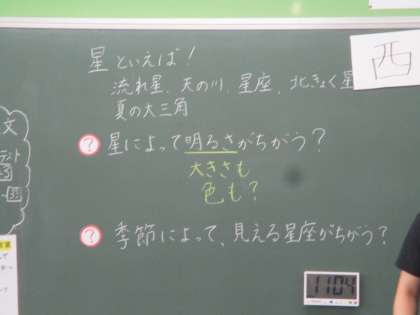 星といえば!
西
流れ星、天の川、星座、北きょく星
夏の大三角
? 星によって明るさがちがう?
大きさも
色も?
? 季節によって、見える星座がちがう?
文
1104